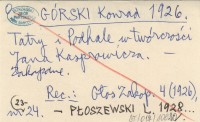 GÓRSKI Konrad 1926.
Tatry i Podhale w twórczości
Jana Kasprowicza. –
Zakopane.
Rec.: Głos Zakop. 4 (1926),
nr 24.
– PŁOSZEWSKI L. 1928...